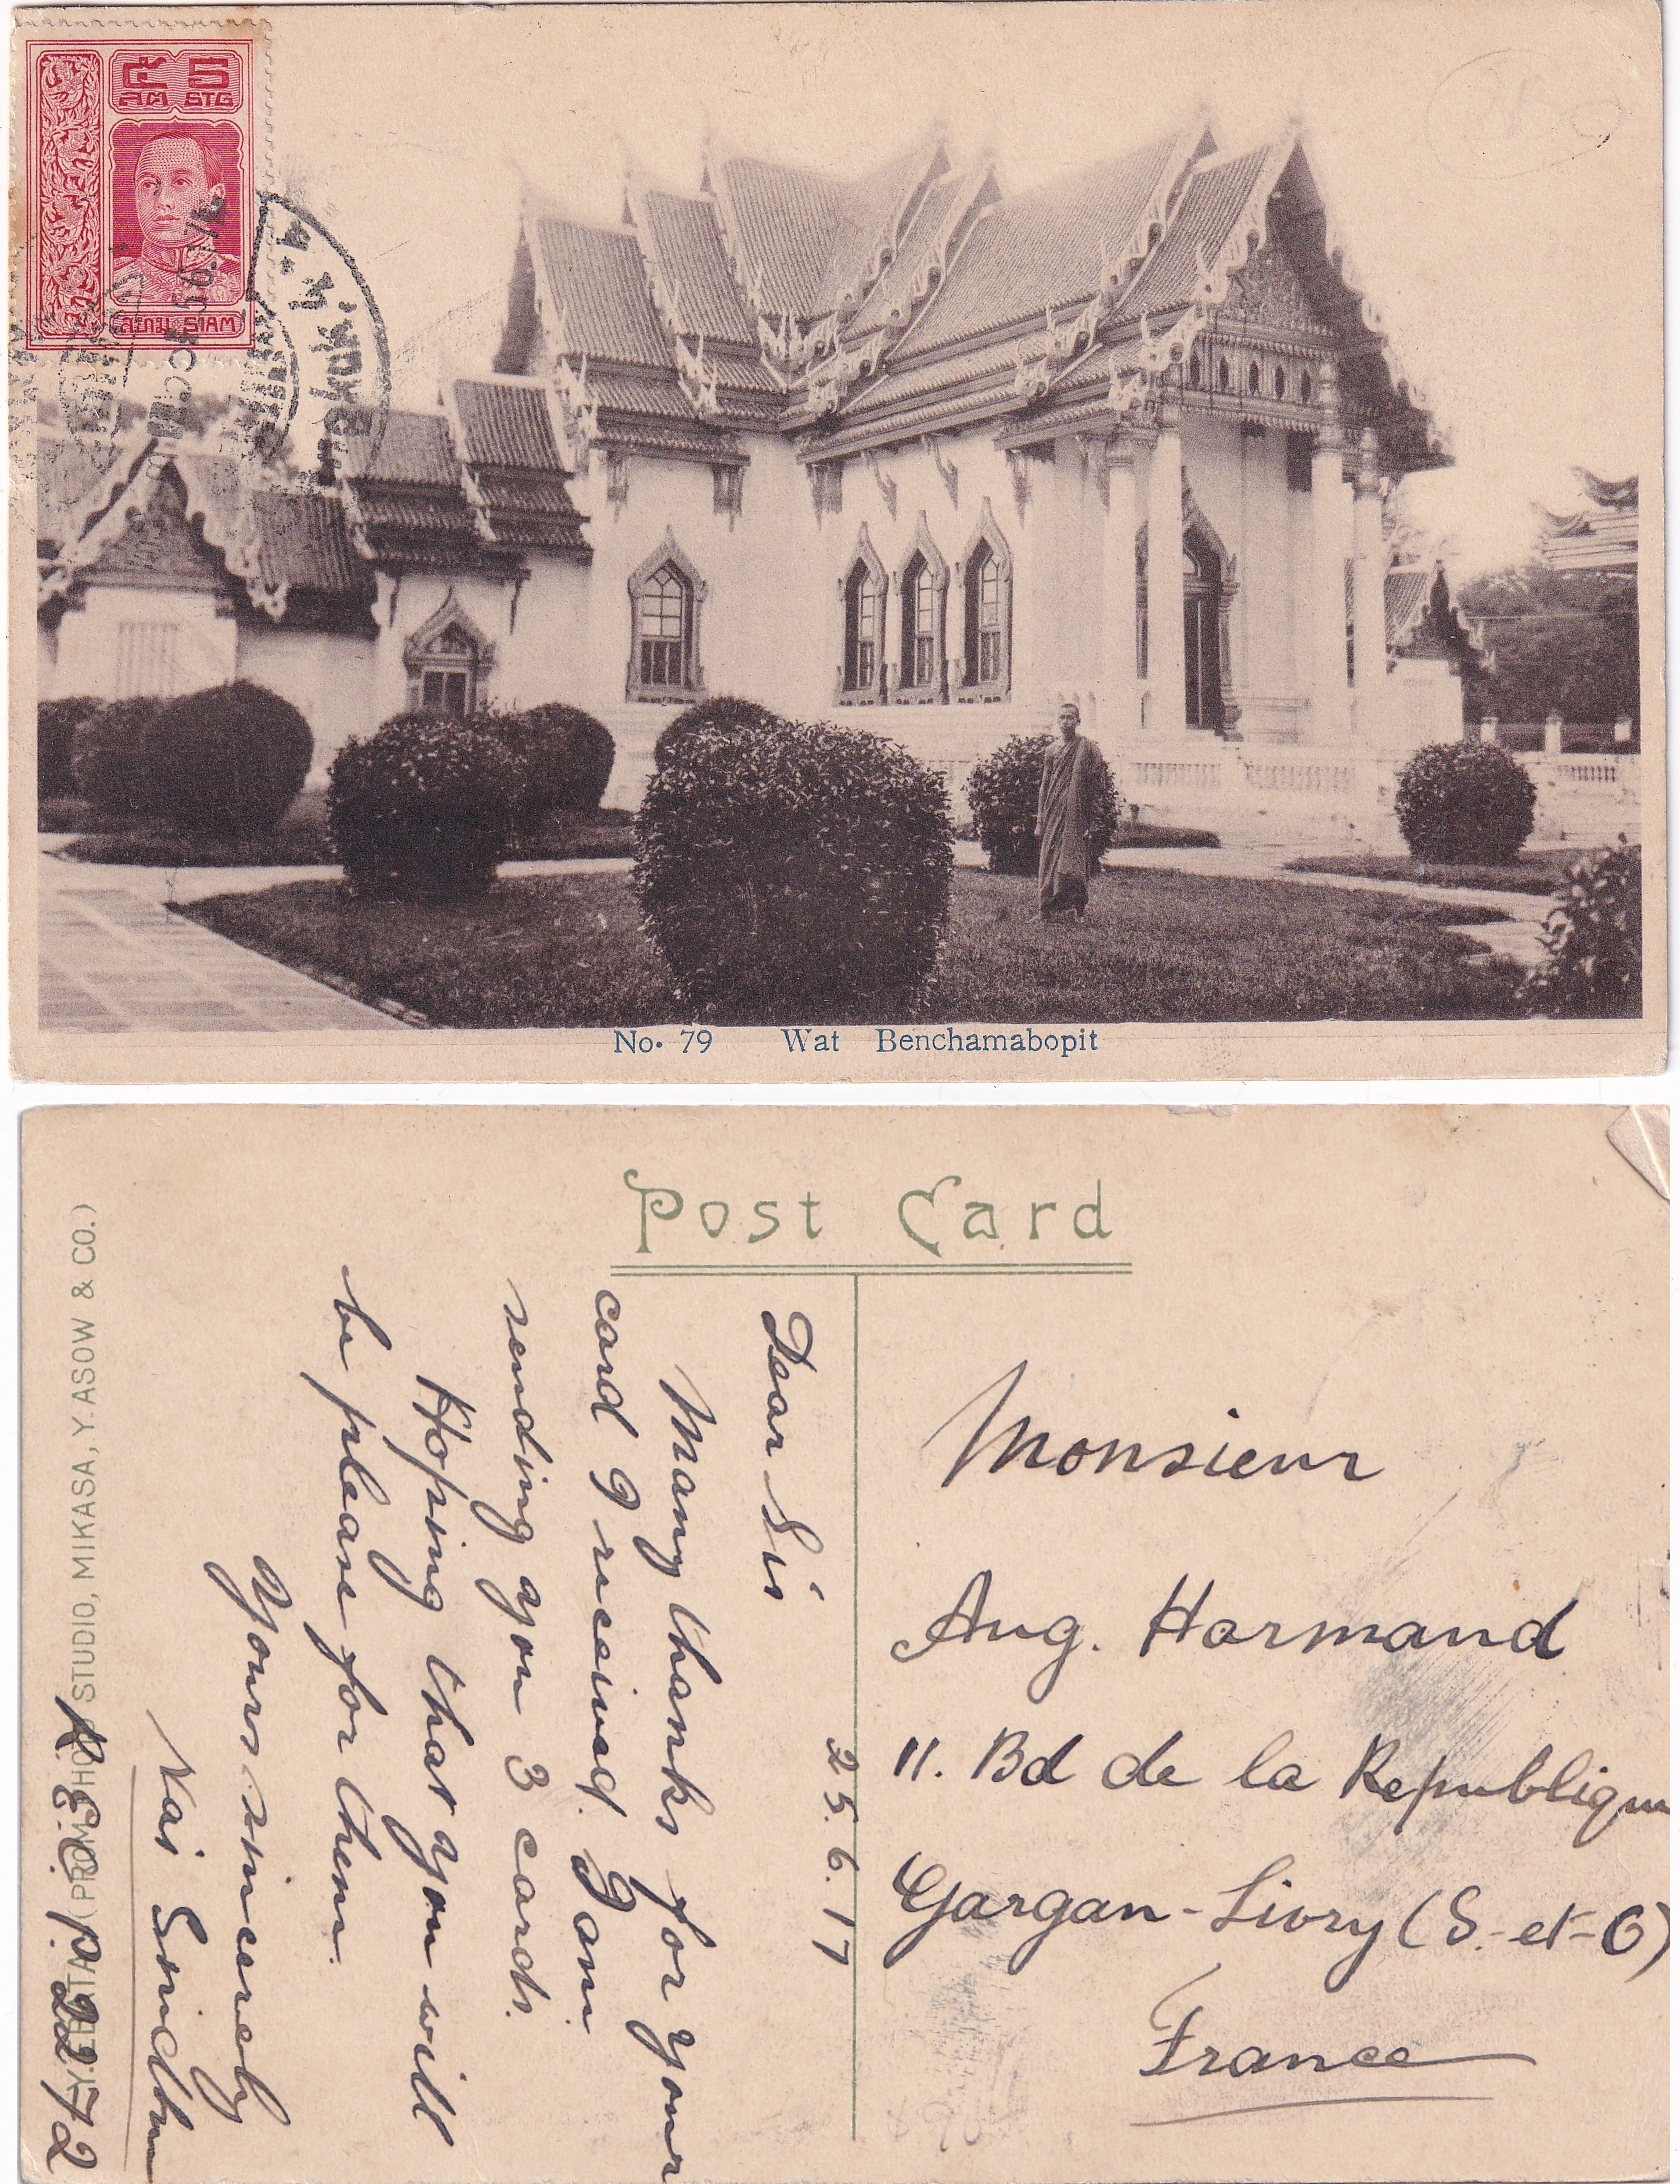 ๕ 5
สต STG
สยาม SIAM
No. 79 Wat Benchamabopit
Post Card
25.6.17
Dear Sir
Many thanks for your
card I received. I am
sending you 3 cards.
Hoping that you will
be please for them.
Yours sincerely
Nai
Y. EBATA (PROM SHOO STUDIO, MIKASA, Y. ASOW & CO.)
Monsieur
Aug. Harmand
11. Bd de la Republique
Gargan-Livry (S.-et-O)
France